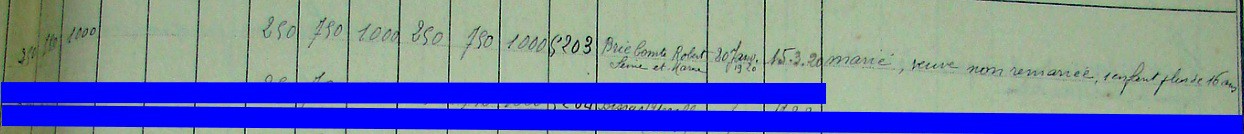 250 750 1000 250 750 1000 250 750 1000 5203 Brie Comte Robert 30 Janv. 15.3.20 marié, veuve non remariée, 1 enfant plus de 16 ans
Seine et Marne 1920